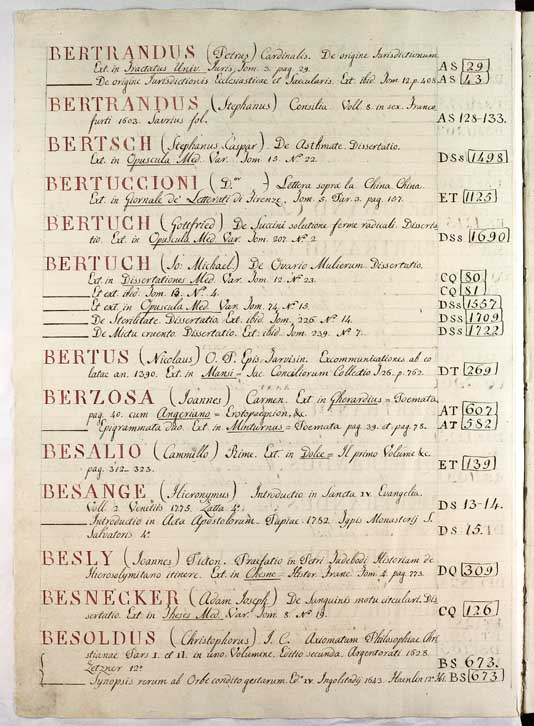 BERTRANDUS (Petrus) Cardinalis. De origine Jurisdictionum
Ext. in Tractatus Univ. Juris, Tom. 3. pag. 29. AS 29
De origine Jurisdictionis Ecclesiasticae et Saecularis. Ext. ibid Tom. 12. p. 408. AS 43
BERTRANDUS (Stephanus) Consilia Voll. 8. in sex. Franco
furti 1603. Saurius fol. AS 128-133.
BERTSCH (Stephanus Caspar) De Asthmate. Dissertatio.
Ext. in Opuscula Med. Var. Tom. 15. No. 22. DSs 1498
BERTUCCIONI (D.or ) Lettera sopra la China China.
Ext. in Giornale de' Letterati di Firenze. Tom. 5. Par. 3. pag. 157. ET 1125
BERTUCH (Gottfried) De Succini solutione ferme radicali. Disserta
tio. Ext. in Opuscula Med. Var. Tom. 207. No. 2. DSs 1690
BERTUCH (Jo: Michael) De Ovario Mulierum Dissertatio.
Ext. in Dissertationes Med. Var. Tom. 12. No. 23. CQ 80
Et ext. ibid. Tom. 13. No. 4. CQ 81
Et ext. in Opuscula Med. Var. Tom. 74. No. 15. DSs 1557
De Sterilitate. Dissertatio Ext. ibid Tom. 226. No. 14. DSs 1709
De Mictu cruento. Dissertatio. Ext. ibid. Tom. 239. No. 7. DSs 1722
BERTUS (Nicolaus) O. P. Epis. Tarvisin. Excommunicationes ab eo
latae an. 1390. Ext. in Mansi = Sac. Conciliorum Collectio T. 26. p. 762. DT 269
BERZOSA (Joannes) Carmen. Ext. in Gherardius = Poemata,
pag. 40. cum Angeriano = Erotopaegnion, &c. AT 607
Epigrammata duo. Ext. in Minturnus = Poemata pag. 39. et pag. 78. AT 582
BESALIO (Cammillo) Rime. Ext. in Dolce = Il primo Volume &c.
pag. 312-323. ET 139
BESANGE (Hieronymus) Introductio in Sancta IV. Evangelia.
Voll. 2. Venetiis 1775. Zatta 4o. DS 13-14.
Introductio in Acta Apostolorum. Papiae. 1782. Typis Monasterij S.
Salvatoris 4o. DS 15.
BESLY (Joannes) Picton. Praefatio in Petri Tudebodi Historiam de
Hierosolymitano itinere. Ext. in Chesne = Histor. Franc. Tom. 4. pag. 773. DQ 309
BESNECKER (Adam Joseph) De Sanguinis motu circulari, Dis
sertatio. Ext. in Theses Med. Var. Tom. 8. No. 19. CQ 126
BESOLDUS (Christophorus) J. C. Axiomatum Philosophiae Chri
stianae Pars I. et II. in uno Volumine. Editio secunda. Argentorati 1628.
Zetzner 12o. BS 673.
Synopsis rerum ab Orbe condito gestarum. Edo. IV. Ingolstadij 1643. Haenlin 12o. BS 673